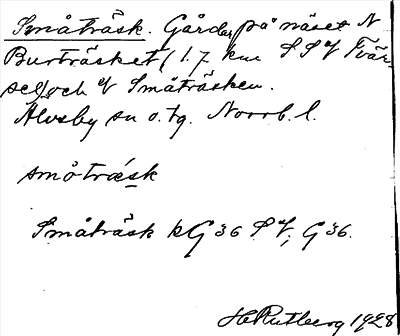 Småträsk. Gårdar på näset N
Burträsket (1.7 km SSV Tvär-
sel) och V Småträsken.
Älvsby sn o. tg. Norrb. l.
småträsk
Småträsk kG 36 SV, G 36.
H Rutberg 1928